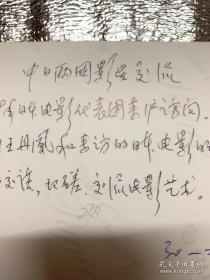 中日两国影星交流
日本电影代表团来沪访问。
王丹凤和来访的日本电影明
交谈,切磋、交流电影艺术。
520
30-2
孔夫子旧书网